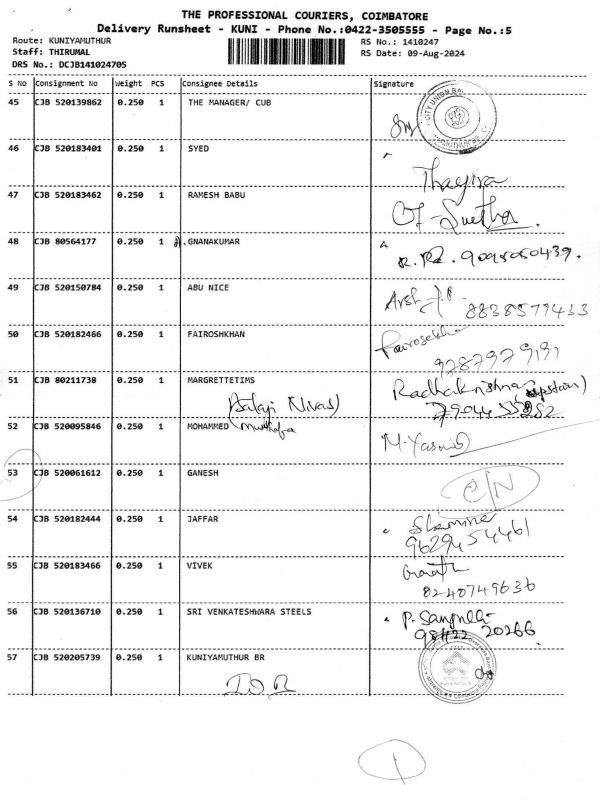 THE PROFESSIONAL COURIERS, COIMBATORE
Delivery Runsheet - KUNI - Phone No.:0422-3505555 - Page No.:5
Route: KUNIYAMUTHUR RS No.: 1410247
Staff: THIRUMAL RS Date: 09-Aug-2024
DRS No.: DCJB141024705
S No Consignment No Weight PCS Consignee Details Signature
45 CJB 520139862 0.250 1 THE MANAGER/ CUB
46 CJB 520183401 0.250 1 SYED
47 CJB 520183462 0.250 1 RAMESH BABU
48 CJB 80564177 0.250 1 GNANAKUMAR
49 CJB 520150784 0.250 1 ABU NICE 8838577433
50 CJB 520182466 0.250 1 FAIROSHKHAN
9787979191
51 CJB 80211738 0.250 1 MARGRETTETIMS Radhakrishnan (upstair)
Balaji (Nivas)
52 CJB 520095846 0.250 1 MOHAMMED M. Yasmi
53 CJB 520061612 0.250 1 GANESH C/N
54 CJB 520182444 0.250 1 JAFFAR
9629454461
55 CJB 520183466 0.250 1 VIVEK
8240749636
56 CJB 520136710 0.250 1 SRI VENKATESHWARA STEELS
20266
57 CJB 520205739 0.250 1 KUNIYAMUTHUR BR